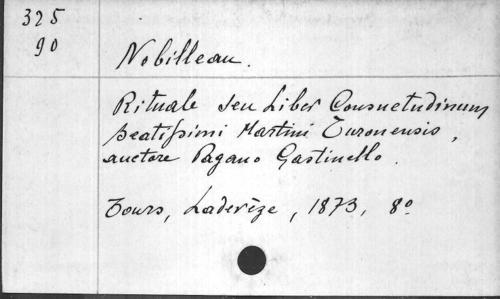 325
90
Nobilleau.
Rituale seu Liber Consuetudinum
beatissimi Martini Turonensis,
auctore Pagano Gastinello.
Tours, Ladevèze, 1873, 8º